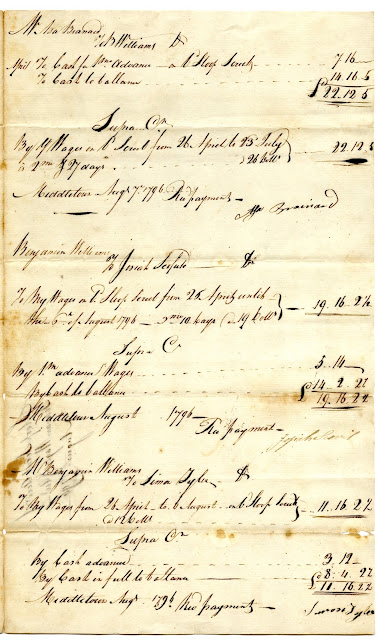 Mr Asa Brainard
To B Williams Dr
April To Cash pr 1m advance 7 16 —
To Cash to ballance 14 16 5
£22.12.5
Supra Cr
By Wages from 26 April to 25 July
2 m & 27 days 22 12 5
Middletown Augt 7th 1796 Recd payment —
Asa Brainard
Benjamin Williams
To Josiah Dr
To My Wages on bd Sloop from 25 April until
the 6th of August 1796 — 3 m 10 days @ 19 Dolls 19 16 2½
Supra Cr
By 1 m advance Wages 5 14 —
By Cash to ballance £14 2 2½
19 16 2½
Middletown August 1796 —
Recd payment —
Mr Benjamin Williams
To Simon Tyler Dr
To My Wages from 26 April to 6 August on bd Sloop 11 16 2½
@ 12 Dolls
Supra Cr
By Cash advance 3 12 —
By Cash in full to ballance £8 4 2½
11 16 2½
Middletown Augt 1796 Recd payment — Simon Tyler